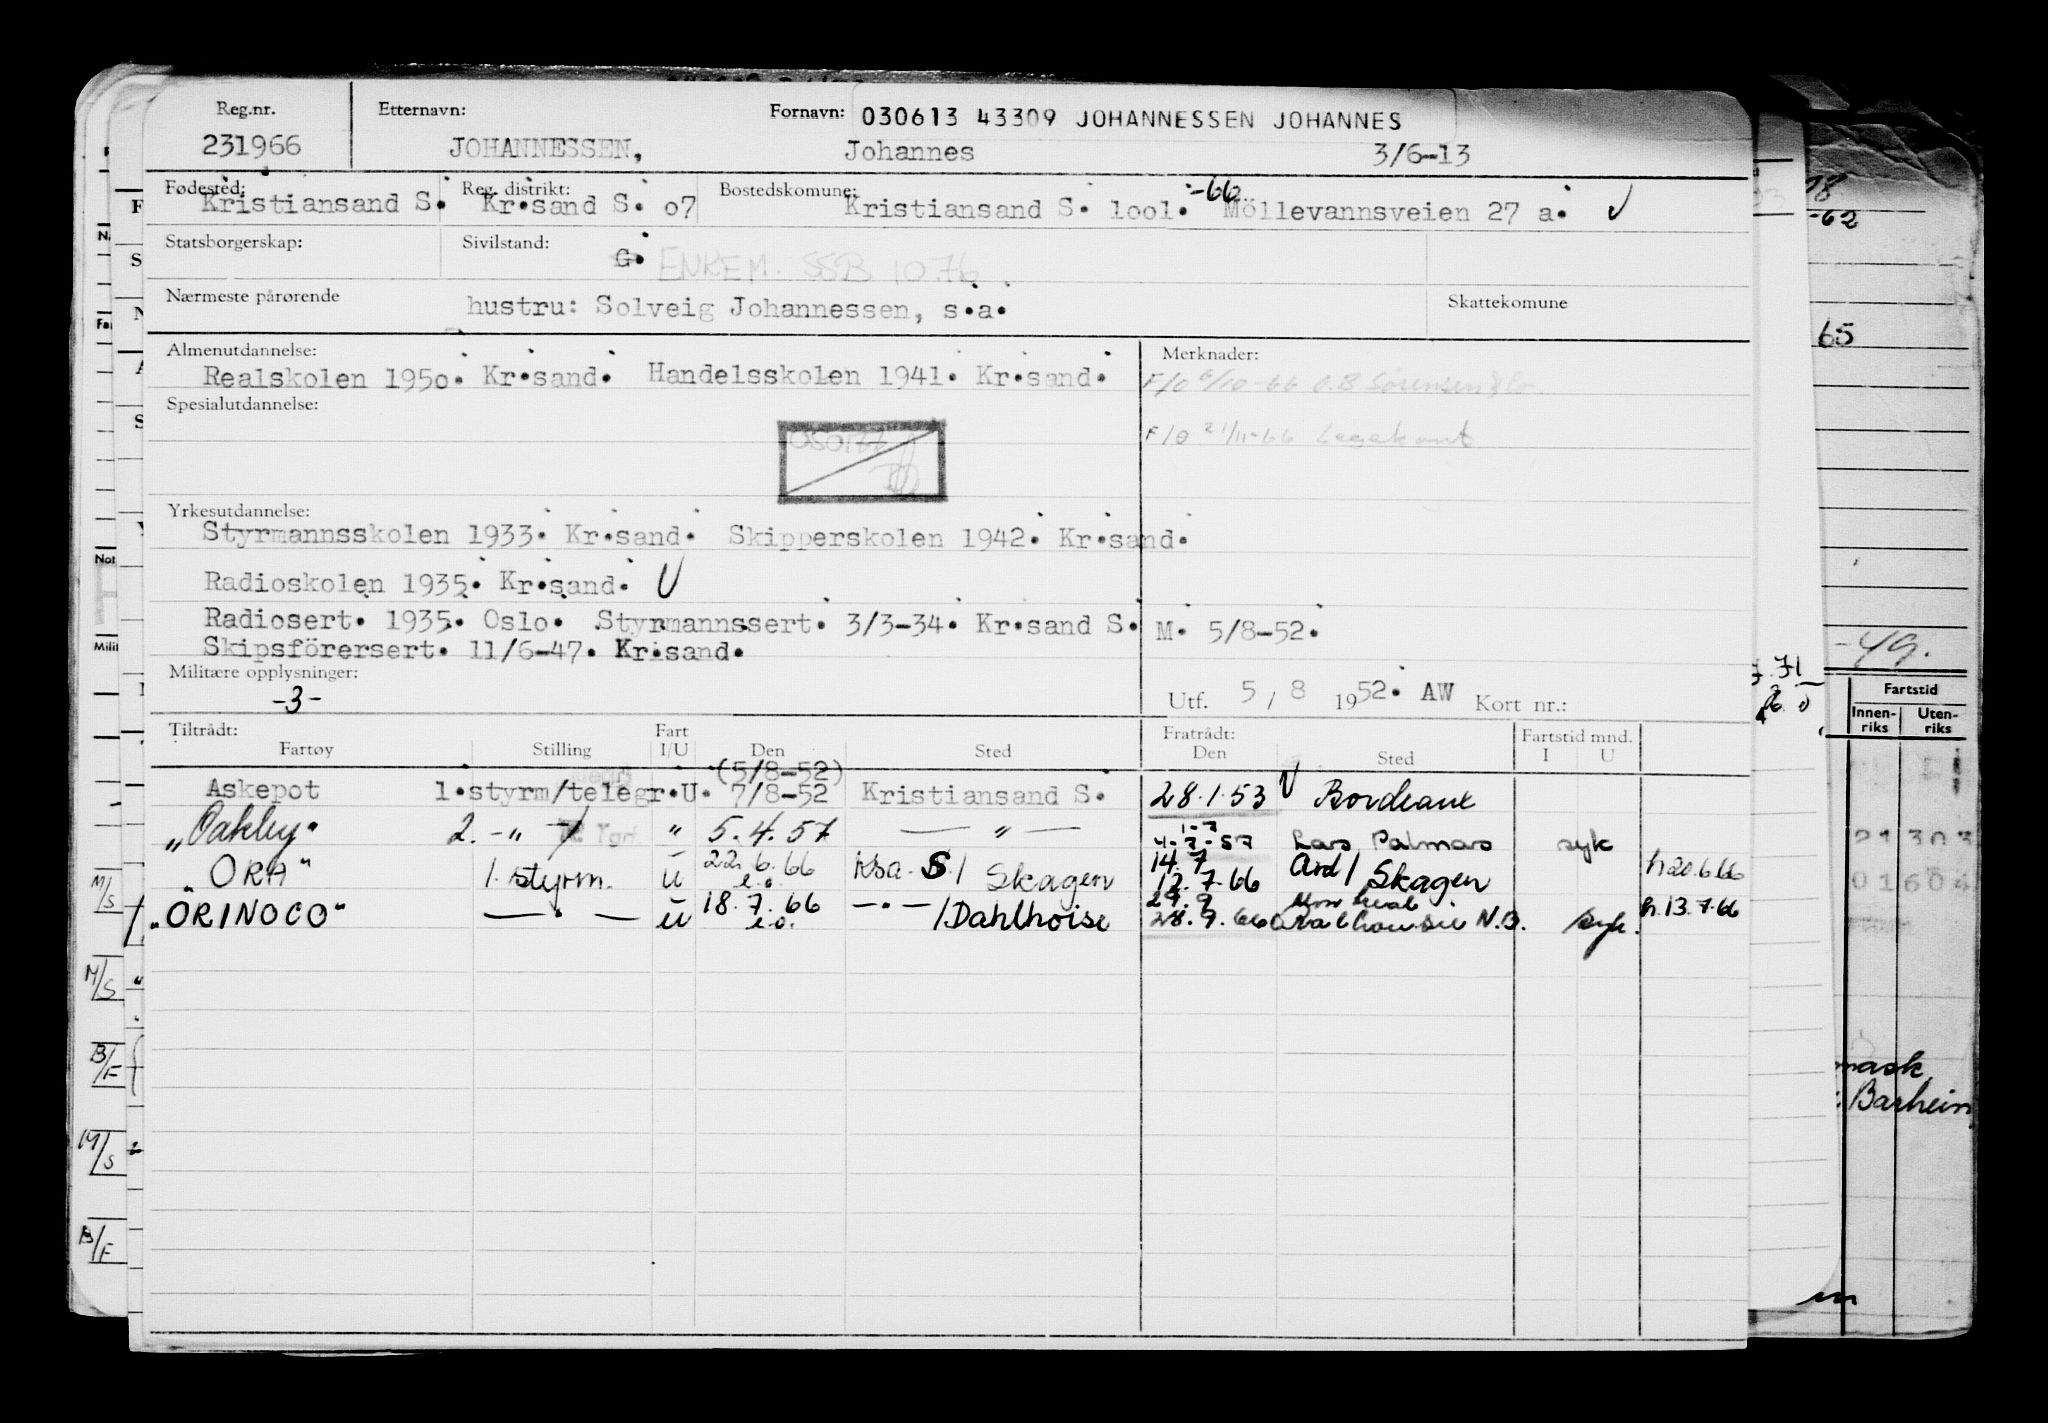 Reg.nr. Etternavn: Fornavn: 030613 43309 JOHANNESSEN JOHANNES
231966 JOHANNESSEN, Johannes 3/6-13
Fødested: Reg. distrikt: Bostedskomune: -66
Kristiansand S. Kr.sand S. 07 Kristiansand S. 1001. Möllevannsveien 27 a.
Statsborgerskap: Sivilstand: G. ENKEM. SSB 10.76
Nærmeste pårørende hustru: Solveig Johannessen, s.a. Skattekomune
Almenutdannelse: Merknader:
Realskolen 1950. Kr.sand. Handelsskolen 1941. Kr.sand. F/O 6/10-66 O.B Sørensen & Co.
Spesialutdannelse:
F/O 21/11-66
Yrkesutdannelse:
Styrmannsskolen 1933. Kr.sand. Skipperskolen 1942. Kr.sand.
Radioskolen 1935. Kr.sand.
Radiosert. 1935. Oslo. Styrmannssert. 3/3-34. Kr.sand S. M. 5/8-52.
Skipsförersert. 11/6-47. Kr.sand.
Militære opplysninger:
-3- Utf. 5 / 8 1952. AW Kort nr.:
Tiltrådt: Fart Fratrådt: Fartstid mnd.
Fartøy Stilling I/U Den Sted Den Sted I U
(5/8-52)
Askepot 1.styrm/telegr. U. 7/8-52 Kristiansand S. 28.1.53 Bordeaux
"Oakley" 2. -"- " 5.4.57 — " — 4-7-57 Las Palmas syk
"ORA" 1. styrm. u 22.6.66 Krsa. S./ Skagen 14.7 12.7.66 Ard/ Skagen h 20.6.66
e.o.
"ORINOCO" — " — u 18.7.66 — " — /Dahlhoise 29.9 28.9.66 Dalhousie N.B. syk. h.13.7.66
e.o.
-62
65
-49.
Fartstid
Innen-riks Uten-riks
21303
Barhein
M/S
M/S
B/F
M/S
B/F